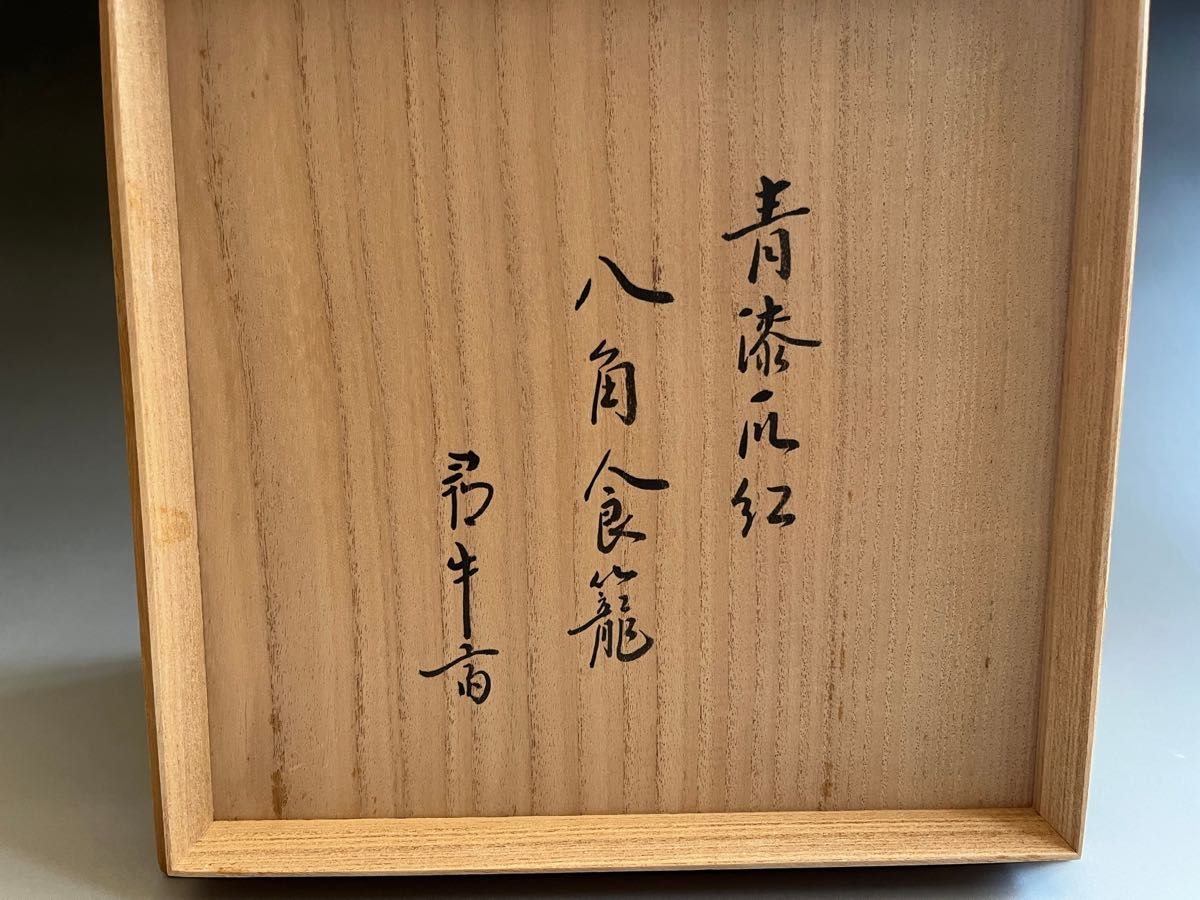 青漆爪紅
八角食籠
尋牛斎